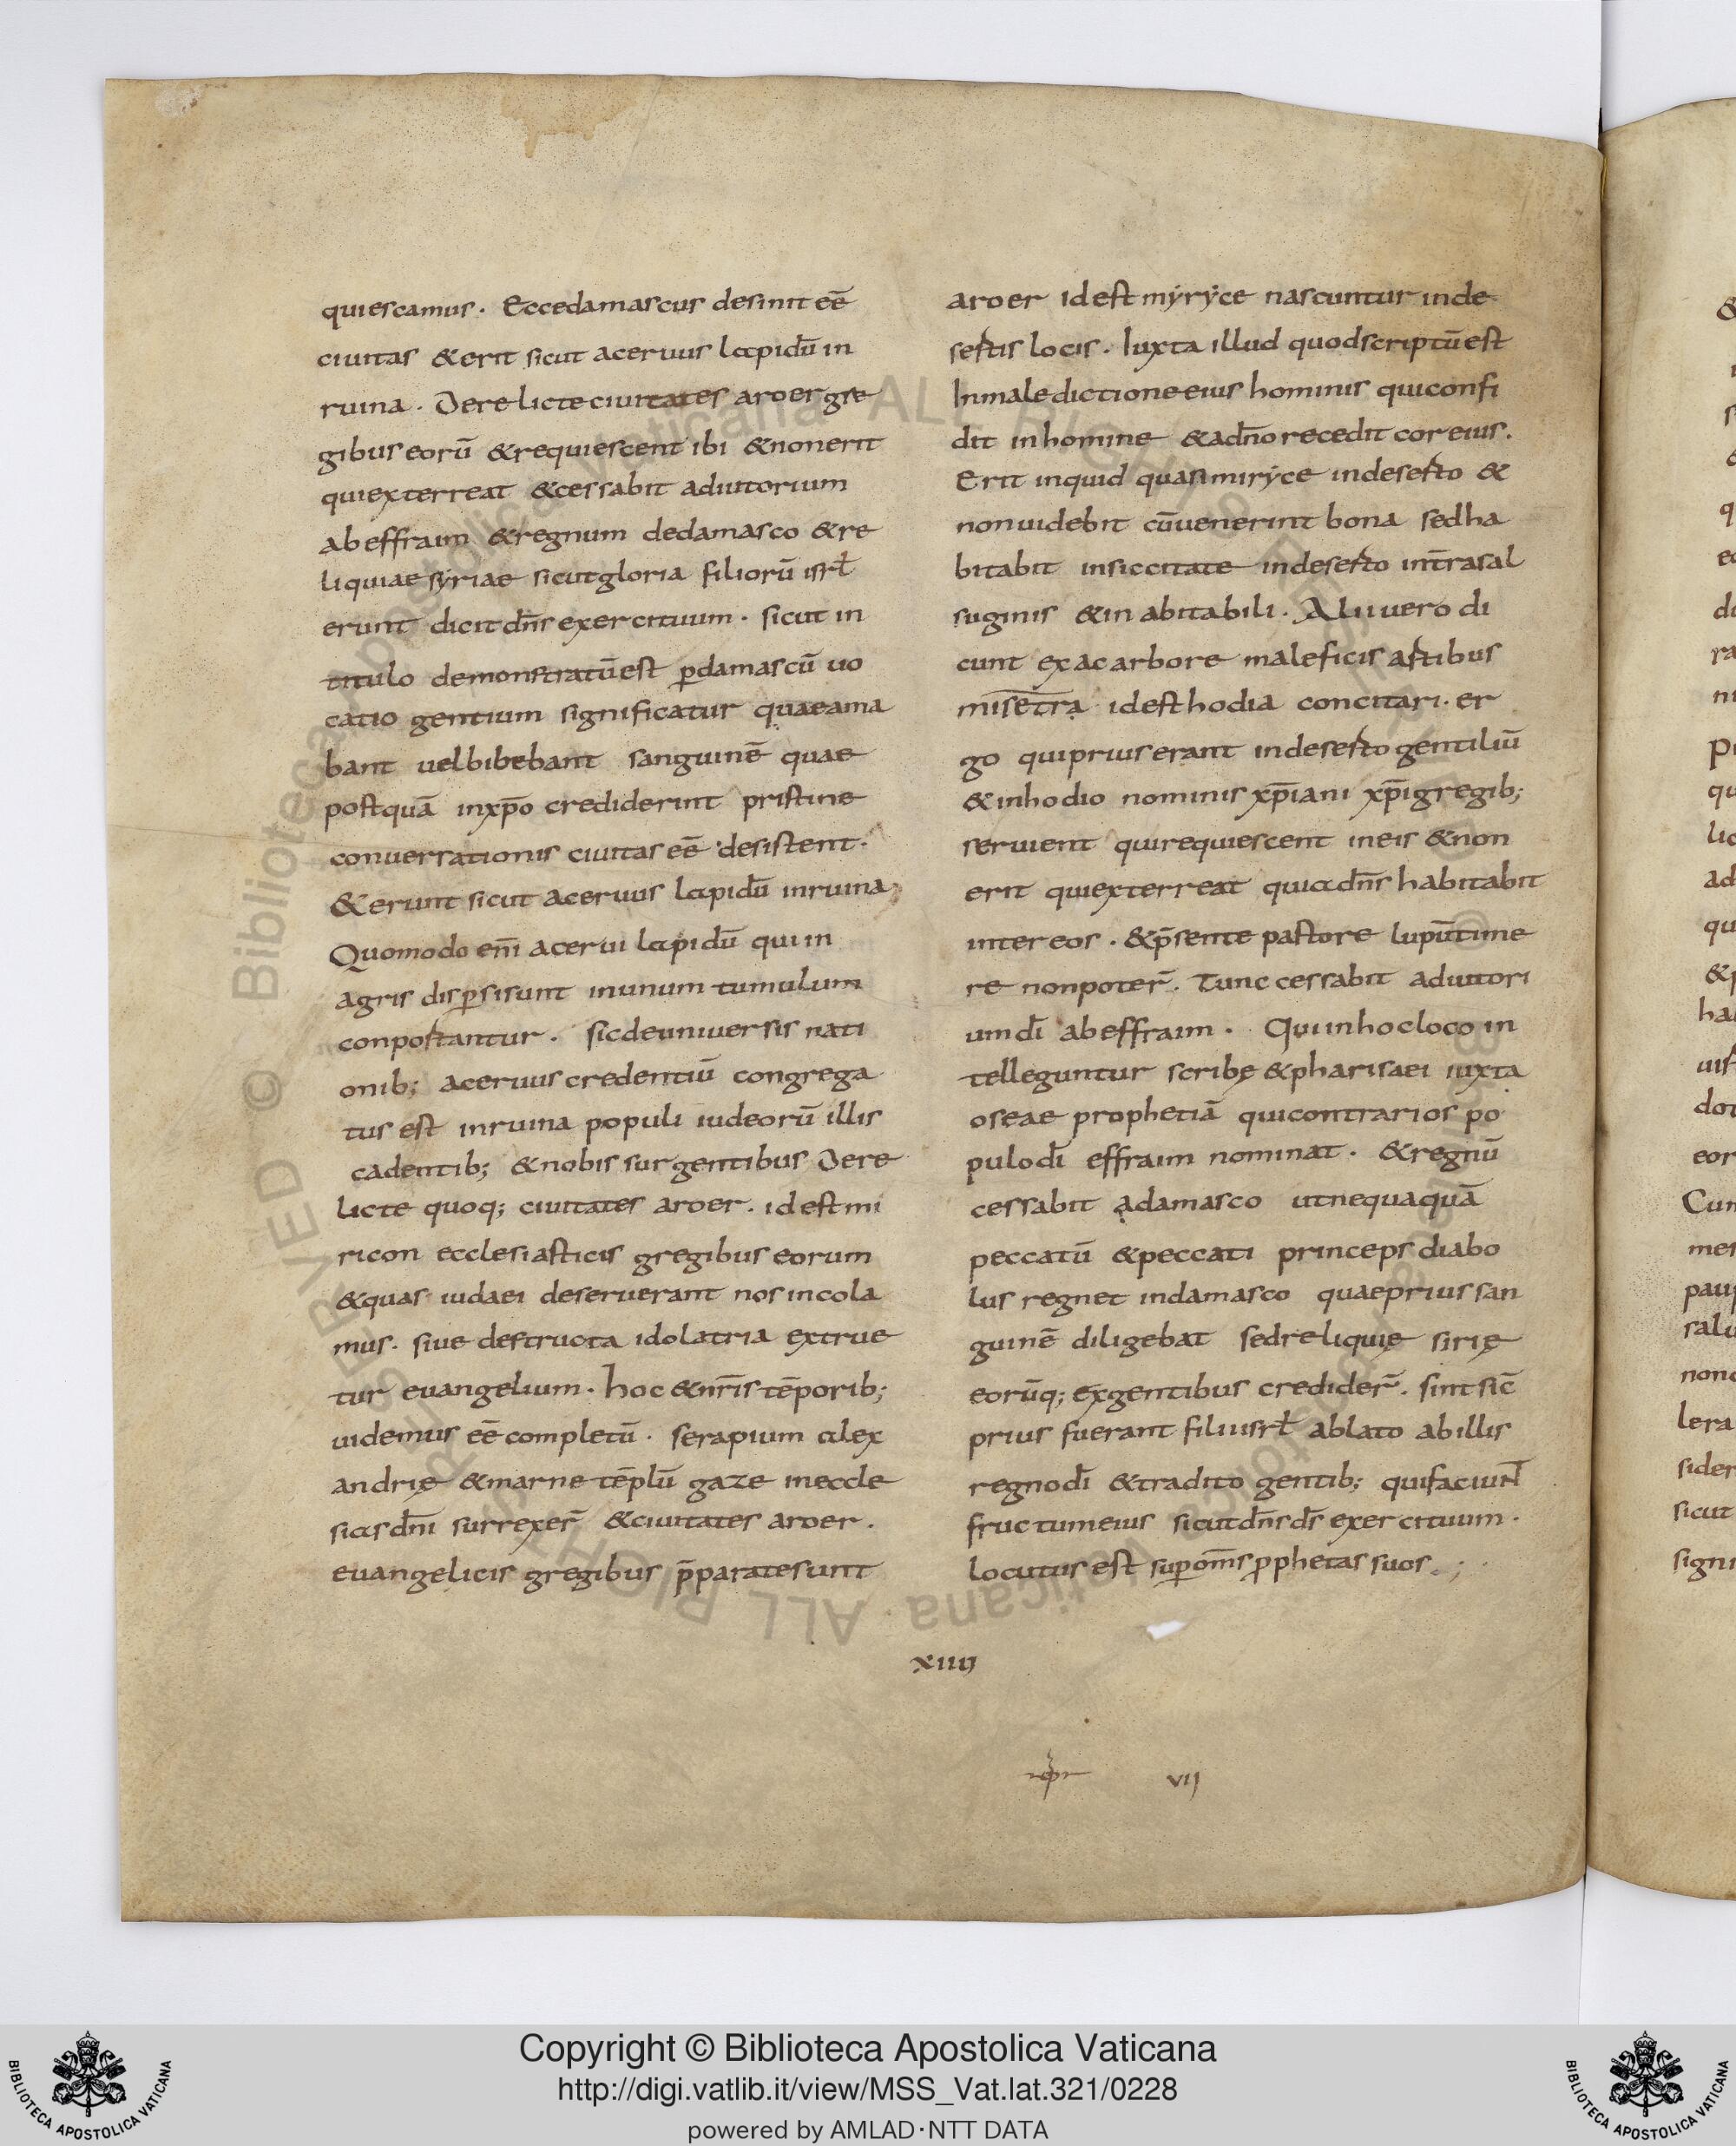 quiescamus. Eccedamascus desinit eē
ciuitas &erit sicut aceruus lapidū in
ruina. Derelicte ciuitates aroer gre
gibus eorū &requiescent ibi &nonerit
quiexterreat &cessabit adiutorium
abeffraim &regnum dedamasco &re
liquiae syriae sicutgloria filiorū isrł
erunt dicit dn̄s exercituum. sicut in
titulo demonstratūest ꝑdamascū uo
catio gentium significatur quaeama
bant uelbibebant sanguinē quae
postquā inxp̄o crediderint pristine
conuersationis ciuitas eē desistent.
&erunt sicut aceruus lapidū inruina;
Quomodo enī acerui lapidū qui in
agris disꝑsisunt inunum tumulum
conportantur. sicdeuniuersis nati
onib; aceruus credentiū congrega
tus est inruina populi iudeorū illis
cadentib; &nobis surgentibus Dere
licte quoq; ciuitates aroer. id est mi
ricon ecclesiasticis gregibus eorum
&quas iudaei deseruerant nos incola
mus. siue destructa idolatria extrue
tur euangelium. hoc &nr̄is tēporib;
uidemus eē completū. serapium alex
andrię &marne tēplū gaze ineccle
sias dn̄i surrexer̄ &ciuitates aroer.
euangelicis gregibus p̄paratesunt
aroer idest mẏrẏce nascuntur inde
sertis locis. Iuxta illud quodscriptūest
Inmaledictione eius hominis quiconfi
dit inhomine &adn̄o recedit cor eius.
Erit inquid quasi mirẏce indeserto &
nonuidebit cūuenerint bona sedha
bitabit insiccitate indeserto int̄rasal
suginis &in abitabili. Alii uero di
cunt exac arbore maleficis astibus
misētra idest hodia concitari. er
go quiprius erant indeserto gentiliū
&inhodio nominis xp̄iani xp̄igregib;
seruient quirequiescent ineis &non
erit quiexterreat quiadn̄s habitabit
inter eos. &p̄sente pastore lupūtime
re nonpoter̄. Tunc cessabit adiutori
um dī abeffraim. Quiinhocloco in
telleguntur scribę &pharisaei iuxta
oseae prophetiā quicontrarios po
pulo dī effraim nominat. &regnū
cessabit ądamasco utnequaquā
peccatū &peccati princeps diabo
lus regnet indamasco quaeprius san
guinē diligebat sedreliquię sirię
eorūq; exgentibus credider̄. sint sic̄
prius fuerant filii isrł ablato ab illis
regno dī &tradito gentib; quifaciunt̄
fructum eius sicutdn̄s ds̄ exercituum.
locutus est suꝑom̄s ꝓphetas suos.;
xiiij
vij